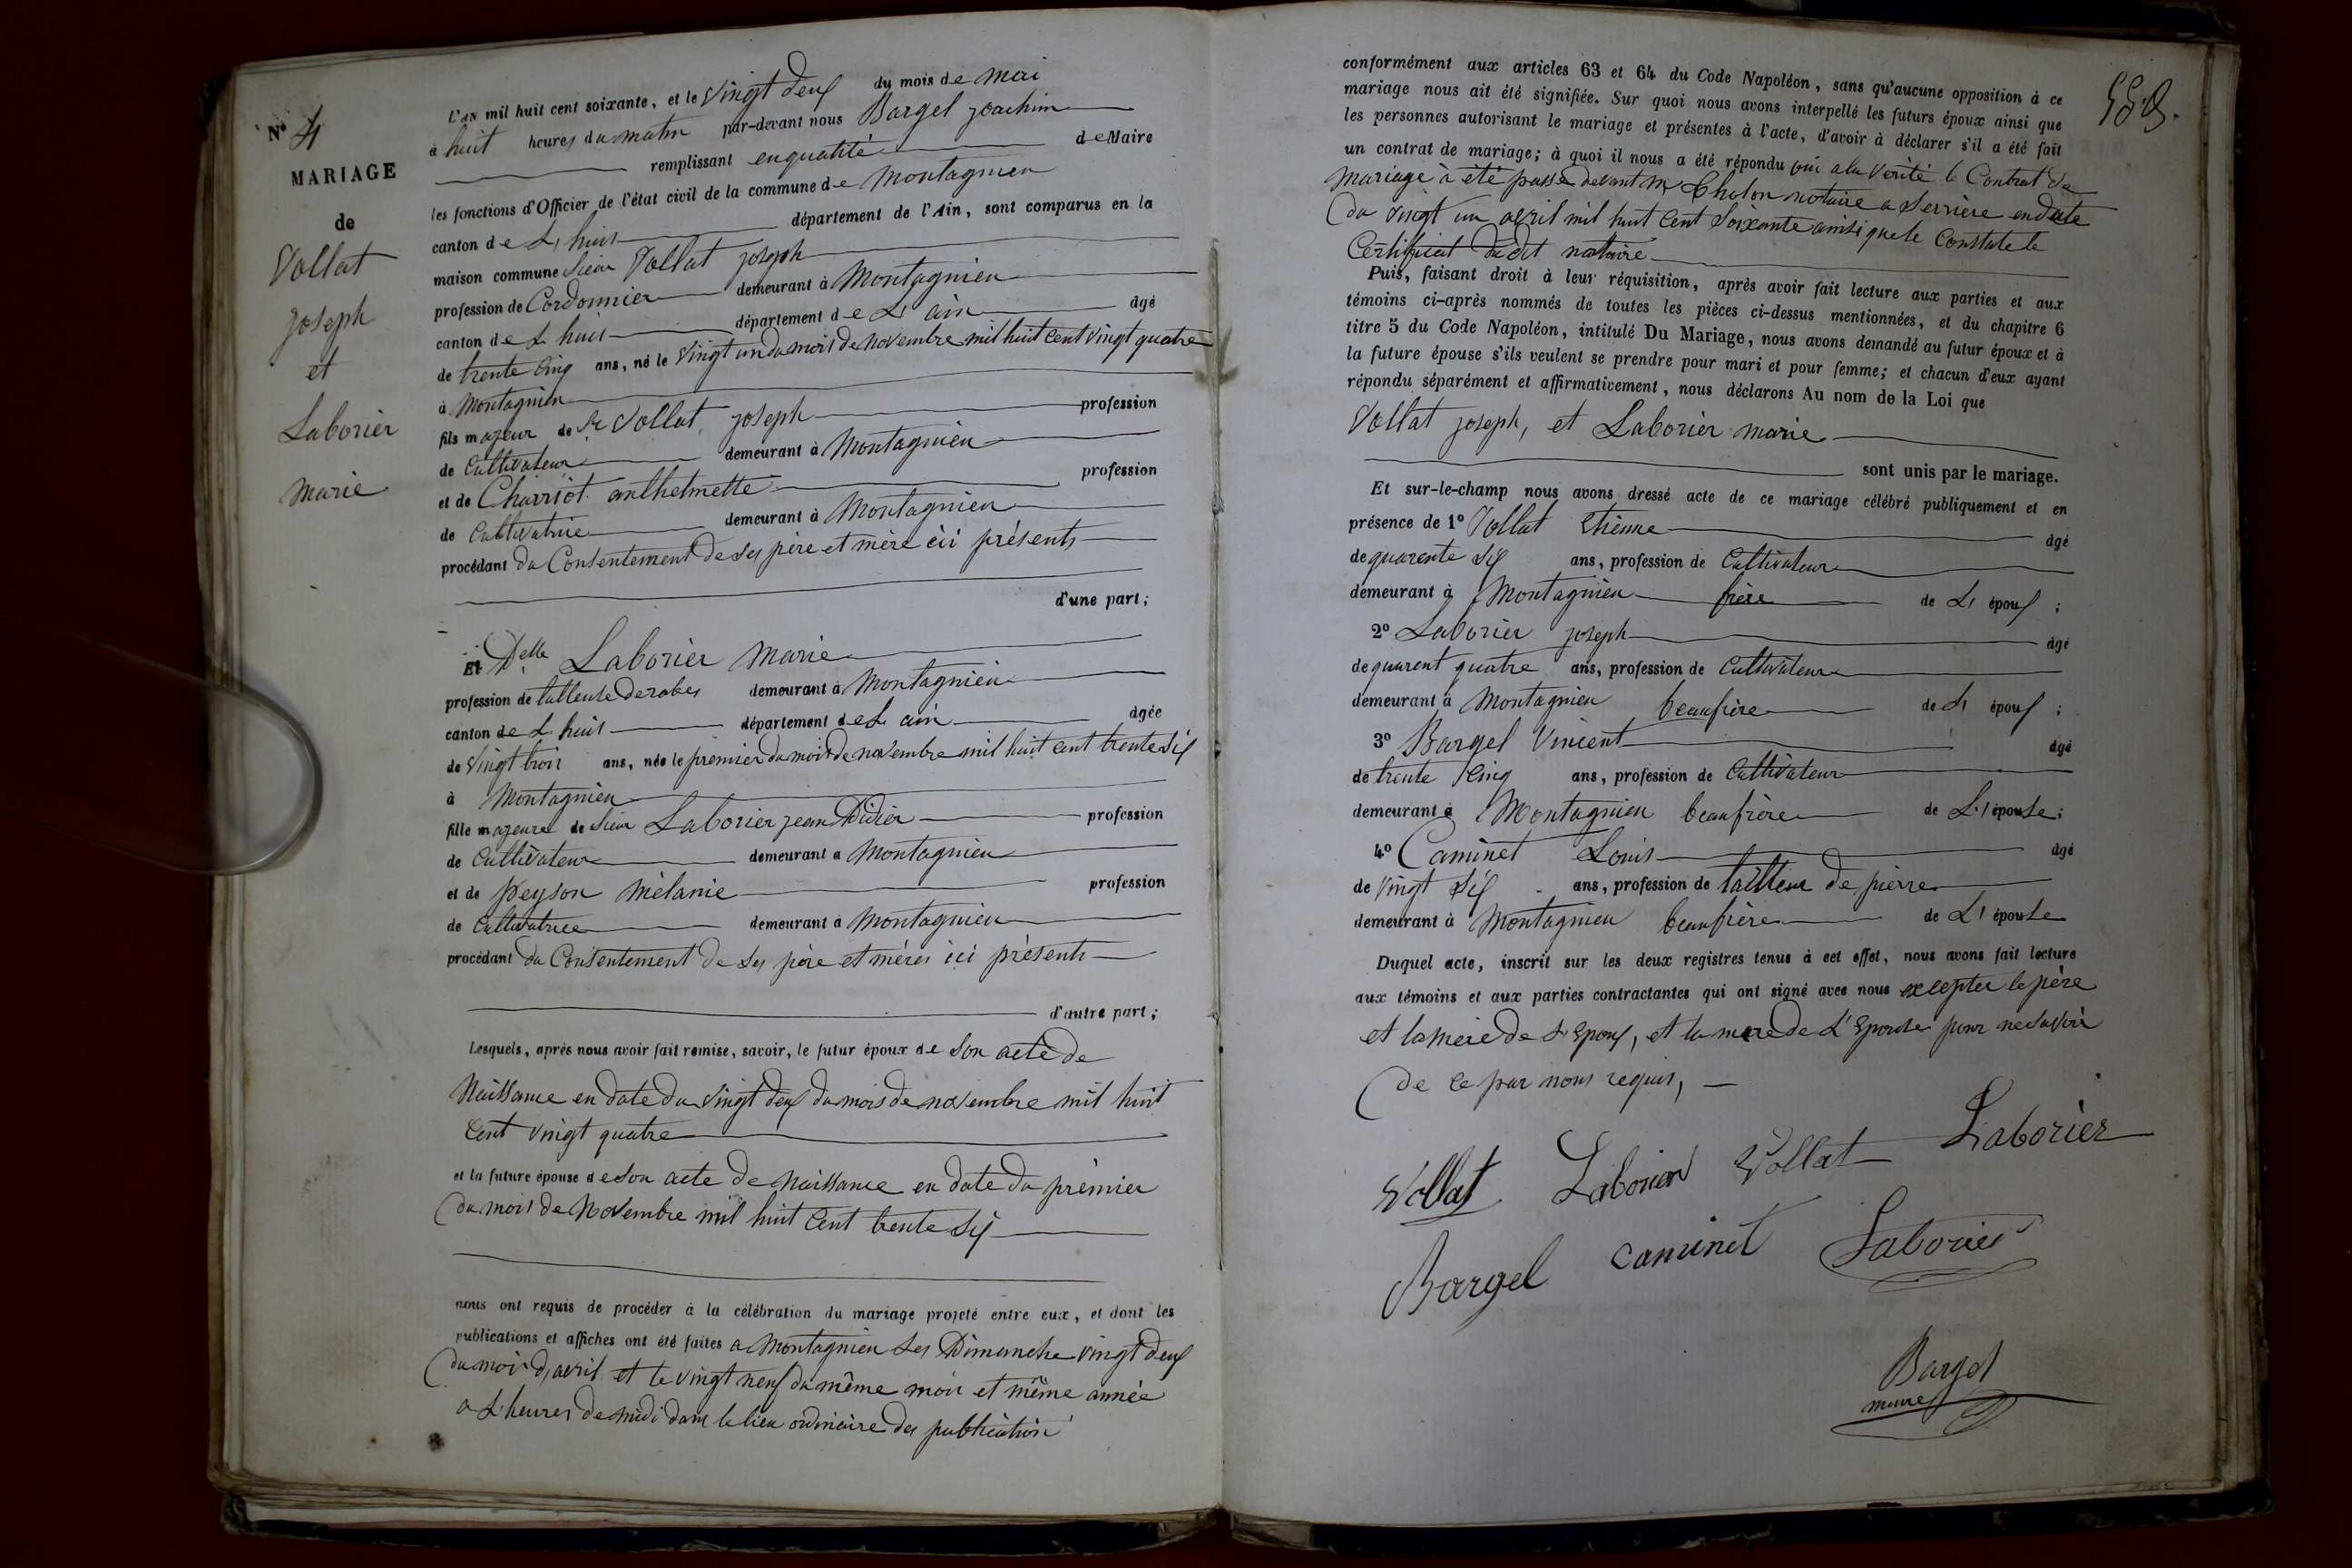 N° 4
MARIAGE
de
Vollat
joseph
et
Laborier
marie
L'AN mil huit cent soixante, et le Vingt deux du mois de mai
à huit heures du matin par-devant nous Bargel joachim
remplissant en qualité de Maire
les fonctions d'Officier de l'état civil de la commune de Montagnieu
canton de L huis département de l'Ain, sont comparus en la
maison commune Sieur Vollat joseph
profession de Cordonnier demeurant à Montagnieu
canton de L huis département de L ain âgé
de trente cinq ans, né le Vingt un du mois de novembre mil huit cent vingt quatre
à Montagnieu
fils majeur de Sr Vollat joseph profession
de Cultivateur demeurant à Montagnieu
et de Charriot anthelmette profession
de Cultivatrice demeurant à Montagnieu
procédant du Consentement de ses père et mère ici présents
d'une part;
Et Delle Laborier marie
profession de tailleuse de robes demeurant à Montagnieu
canton de L huis département de L ain âgée
de Vingt trois ans, née le premier du mois de novembre mil huit cent trente six
à Montagnieu
fille majeure de Sieur Laborier jean Didier profession
de Cultivateur demeurant à Montagnieu
et de peyson mélanie profession
de Cultivatrice demeurant à Montagnieu
procédant du Consentement de ses père et mères ici présents
d'autre part;
Lesquels, après nous avoir fait remise, savoir, le futur époux de son acte de
Naissance en date du Vingt deux du mois de novembre mil huit
Cent vingt quatre
et la future épouse de son acte de naissance en date du premier
du mois de Novembre mil huit Cent trente six
nous ont requis de procéder à la célébration du mariage projeté entre eux, et dont les
publications et affiches ont été faites a Montagnieu les Dimanche vingt deux
du mois d'avril et le vingt neuf du même mois et même année
a L'heures de midi dans le lieu ordinaire des publication
conformément aux articles 63 et 64 du Code Napoléon, sans qu'aucune opposition à ce
mariage nous ait été signifiée. Sur quoi nous avons interpellé les futurs époux ainsi que
les personnes autorisant le mariage et présentes à l'acte, d'avoir à déclarer s'il a été fait
un contrat de mariage; à quoi il nous a été répondu oui a la Vérité le Contrat de
mariage à été passé devant me Cholon notaire a Serrière en date
du vingt un avril mil huit Cent Soixante ainsi que le Constate le
Certificat du dit notaire
Puis, faisant droit à leur réquisition, après avoir fait lecture aux parties et aux
témoins ci-après nommés de toutes les pièces ci-dessus mentionnées, et du chapitre 6
titre 5 du Code Napoléon, intitulé Du Mariage, nous avons demandé au futur époux et à
la future épouse s'ils veulent se prendre pour mari et pour femme; et chacun d'eux ayant
répondu séparément et affirmativement, nous déclarons Au nom de la Loi que
Vollat joseph, et Laborier marie
sont unis par le mariage.
Et sur-le-champ nous avons dressé acte de ce mariage célébré publiquement et en
présence de 1° Vollat Etienne âgé
de quarente six ans, profession de Cultivateur
demeurant à Montagnieu frère de L' époux ;
2° Laborier joseph âgé
de quarent quatre ans, profession de Cultivateur
demeurant à Montagnieu beaufrère de L' époux ;
3° Bargel Vincent âgé
de trente Cinq ans, profession de Cultivateur
demeurant à Montagnieu beaufrère de L' épouse;
4° Caminet Louis âgé
de Vingt six ans, profession de tailleur de pierre
demeurant à Montagnieu beaufrère de L' épouse
Duquel acte, inscrit sur les deux registres tenus à cet effet, nous avons fait lecture
aux témoins et aux parties contractantes qui ont signé avec nous excepter le père
et la mère de L'Epoux, et la mere de L'Epouse pour ne savoir
de ce par nous requis,
Vollat Laborier Vollat Laborier
Bargel caminet Laborier
Bargel
maire